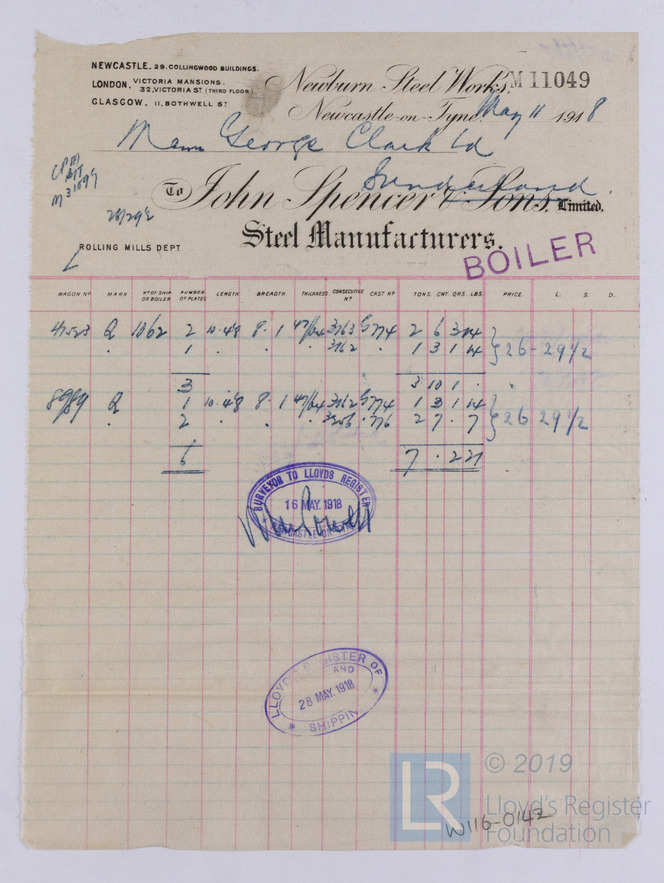 NEWCASTLE. 29. COLLINGWOOD BUILDINGS.
LONDON, VICTORIA MANSIONS. 32, VICTORIA ST (THIRD FLOOR)
GLASGOW, 11, BOTHWELL ST
Newburn Steel Works,
M 11049
Newcastle-on-Tyne. May 11 1918
George Clark Ld
Sunderland
To John Spencer & Sons, Limited.
Steel Manufacturers.
ROLLING MILLS DEPT
BOILER
WAGON No MARK No OF SHIP OR BOILER NUMBER OF PLATES LENGTH BREADTH THICKNESS CONSECUTIVE No CAST No TONS. CWT. QRS. LBS PRICE. L. S. D.
2 10.48 8.1 47/64 3163 2 6 3 14
1 3162 1 3 1 14 26-29 1/2
3 3 10 1
8989 Q 1 10.48 8.1 47/64 3162 1 3 1 14
2 2 7 . 7 26 29 1/2
6 7 . 2 21
SURVEYOR TO LLOYDS REGISTER
16 MAY. 1918
NEWCASTLE-ON-TYNE
LLOYD'S REGISTER OF
AND
28 MAY. 1918
SHIPPING
LR
© 2019
Lloyd's Register
Foundation
W116-0142